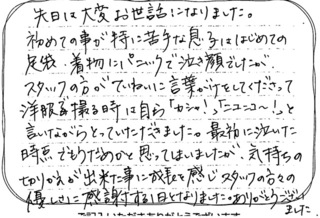 先日は大変お世話になりました。
初めての事が特に苦手な息子ははじめての
足袋・着物にパニックで泣き顔でしたが、
スタッフの方がていねいに言葉がけをしてくださって
洋服を撮る時は自ら「カシャ!」「ニコニコ〜!」と
言いながらとっていただきました。最初に泣いた
時点でもうだめかと思ってはいましたが、気持ちの
切りかえが出来た事に成長を感じスタッフの方々の
優しさに感謝する1日となりました。ありがとうござい
ました。